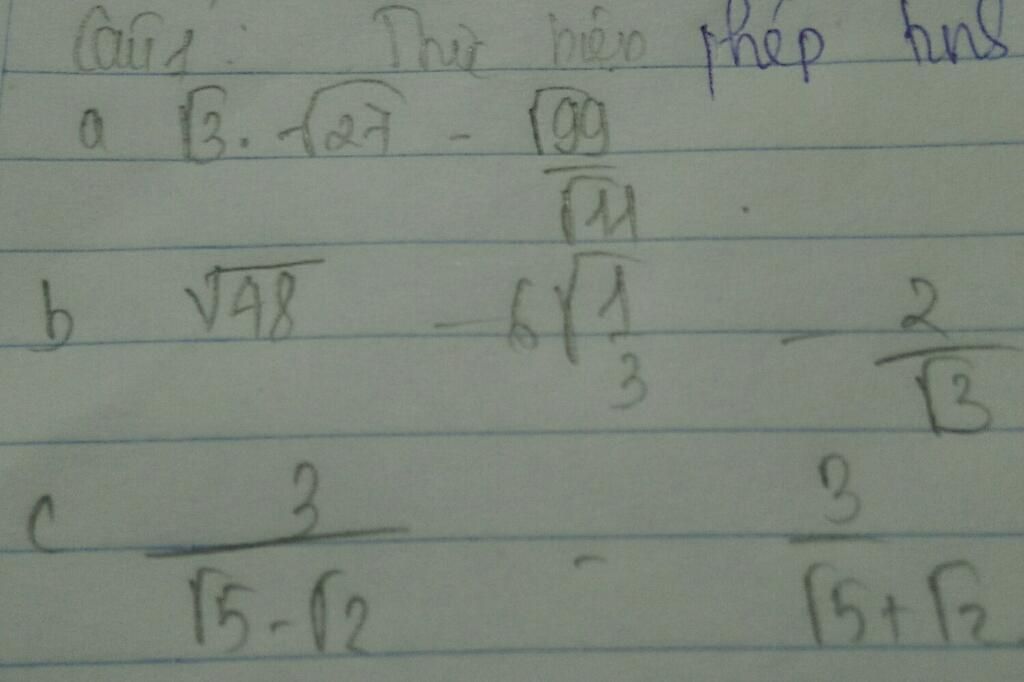 Câu 1: Thực hiện phép tính
a √3 . √27 - √99/√11
b √48 - 6√1/3 - 2/√3
c 3/(√5-√2) - 3/(√5+√2)